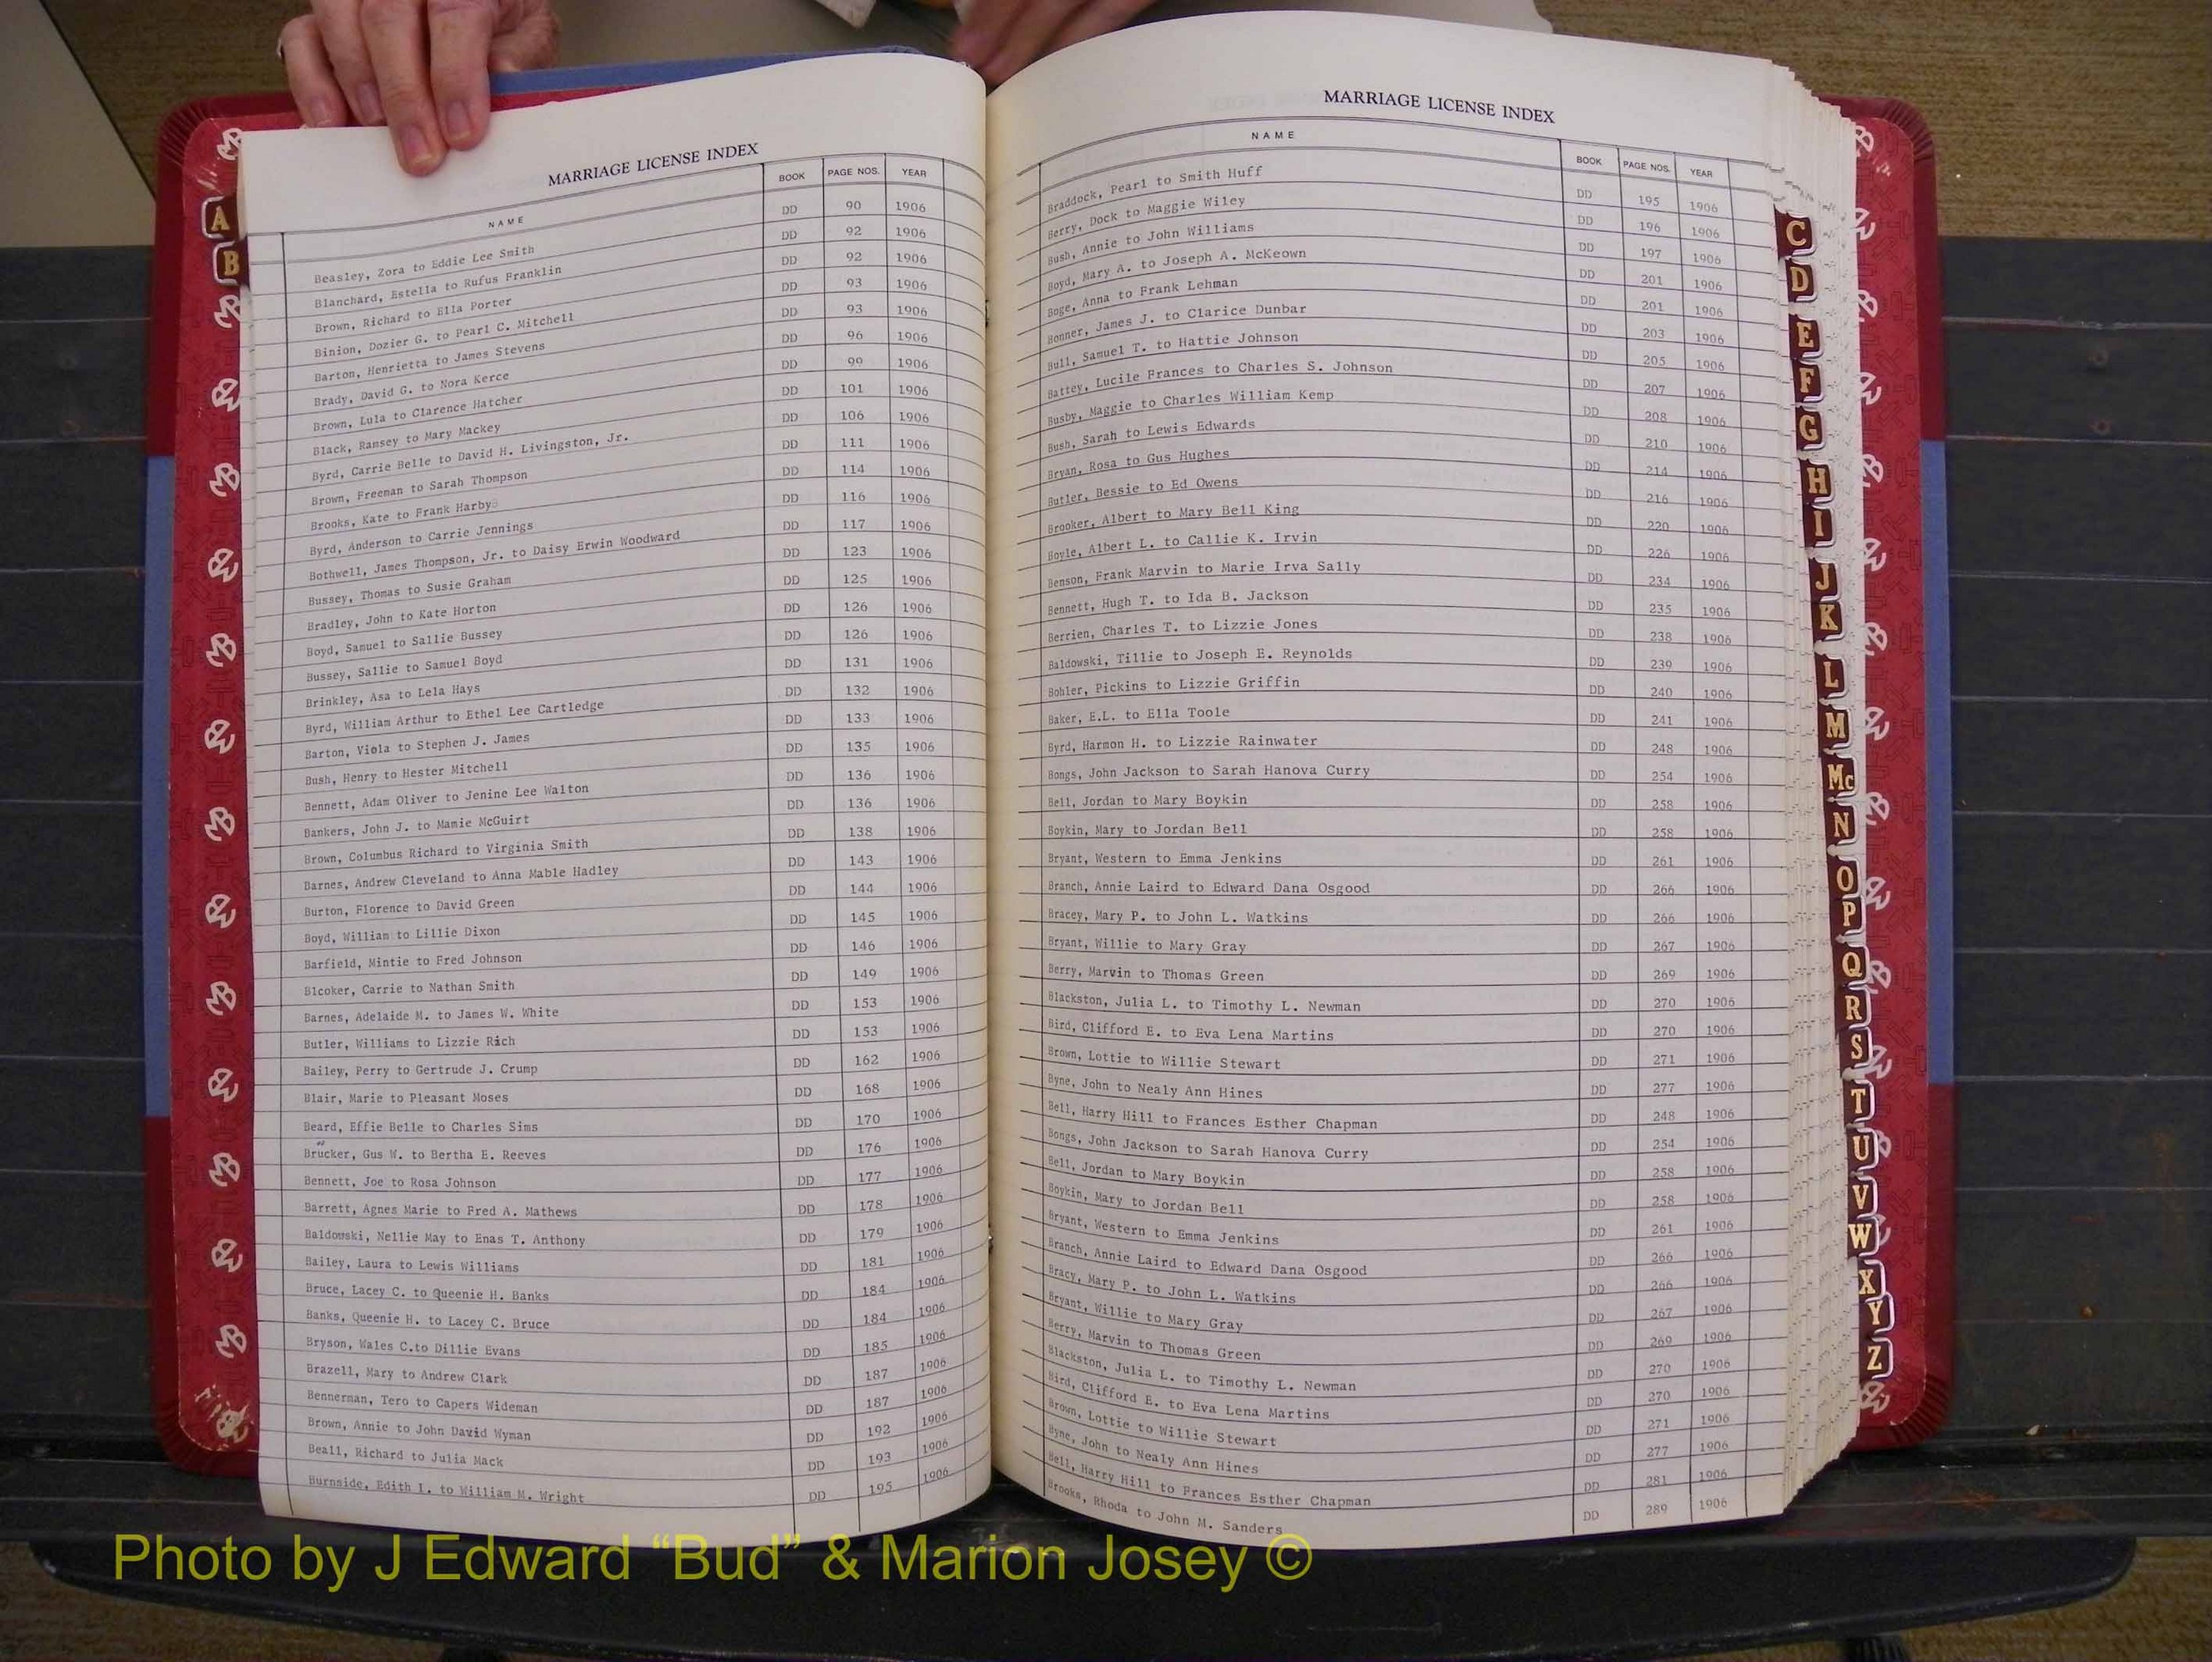 MARRIAGE LICENSE INDEX
NAME BOOK PAGE NOS. YEAR
Beasley, Zora to Eddie Lee Smith DD 90 1906
Blanchard, Estella to Rufus Franklin DD 92 1906
Brown, Richard to Ella Porter DD 92 1906
Binion, Dozier G. to Pearl C. Mitchell DD 93 1906
Barton, Henrietta to James Stevens DD 93 1906
Brady, David G. to Nora Kerce DD 96 1906
Brown, Lula to Clarence Hatcher DD 99 1906
Black, Ramsey to Mary Mackey DD 101 1906
Byrd, Carrie Belle to David H. Livingston, Jr. DD 106 1906
Brown, Freeman to Sarah Thompson DD 111 1906
Brooks, Kate to Frank Harby DD 114 1906
Byrd, Anderson to Carrie Jennings DD 116 1906
Bothwell, James Thompson, Jr. to Daisy Erwin Woodward DD 117 1906
Bussey, Thomas to Susie Graham DD 123 1906
Bradley, John to Kate Horton DD 125 1906
Boyd, Samuel to Sallie Bussey DD 126 1906
Bussey, Sallie to Samuel Boyd DD 126 1906
Brinkley, Asa to Lela Hays DD 131 1906
Byrd, William Arthur to Ethel Lee Cartledge DD 132 1906
Barton, Viola to Stephen J. James DD 133 1906
Bush, Henry to Hester Mitchell DD 135 1906
Bennett, Adam Oliver to Jenine Lee Walton DD 136 1906
Bankers, John J. to Mamie McGuirt DD 136 1906
Brown, Columbus Richard to Virginia Smith DD 138 1906
Barnes, Andrew Cleveland to Anna Mable Hadley DD 143 1906
Burton, Florence to David Green DD 144 1906
Boyd, William to Lillie Dixon DD 145 1906
Barfield, Mintie to Fred Johnson DD 146 1906
Blcoker, Carrie to Nathan Smith DD 149 1906
Barnes, Adelaide M. to James W. White DD 153 1906
Butler, Williams to Lizzie Rich DD 153 1906
Bailey, Perry to Gertrude J. Crump DD 162 1906
Blair, Marie to Pleasant Moses DD 168 1906
Beard, Effie Belle to Charles Sims DD 170 1906
Brucker, Gus W. to Bertha E. Reeves DD 176 1906
Bennett, Joe to Rosa Johnson DD 177 1906
Barrett, Agnes Marie to Fred A. Mathews DD 178 1906
Baldowski, Nellie May to Enas T. Anthony DD 179 1906
Bailey, Laura to Lewis Williams DD 181 1906
Bruce, Lacey C. to Queenie H. Banks DD 184 1906
Banks, Queenie H. to Lacey C. Bruce DD 184 1906
Bryson, Wales C.to Dillie Evans DD 185 1906
Brazell, Mary to Andrew Clark DD 187 1906
Bennerman, Tero to Capers Wideman DD 187 1906
Brown, Annie to John David Wyman DD 192 1906
Beall, Richard to Julia Mack DD 193 1906
Burnside, Edith L. to William M. Wright DD 195 1906
MARRIAGE LICENSE INDEX
NAME BOOK PAGE NOS. YEAR
Braddock, Pearl to Smith Huff DD 195 1906
Berry, Dock to Maggie Wiley DD 196 1906
Bush, Annie to John Williams DD 197 1906
Boyd, Mary A. to Joseph A. McKeown DD 201 1906
Boge, Anna to Frank Lehman DD 201 1906
Bonner, James J. to Clarice Dunbar DD 203 1906
Bull, Samuel T. to Hattie Johnson DD 205 1906
Battey, Lucile Frances to Charles S. Johnson DD 207 1906
Busby, Maggie to Charles William Kemp DD 208 1906
Bush, Sarah to Lewis Edwards DD 210 1906
Bryan, Rosa to Gus Hughes DD 214 1906
Butler, Bessie to Ed Owens DD 216 1906
Brooker, Albert to Mary Bell King DD 220 1906
Boyle, Albert L. to Callie K. Irvin DD 226 1906
Benson, Frank Marvin to Marie Irva Sally DD 234 1906
Bennett, Hugh T. to Ida B. Jackson DD 235 1906
Berrien, Charles T. to Lizzie Jones DD 238 1906
Baldowski, Tillie to Joseph E. Reynolds DD 239 1906
Bohler, Pickins to Lizzie Griffin DD 240 1906
Baker, E.L. to Ella Toole DD 241 1906
Byrd, Harmon H. to Lizzie Rainwater DD 248 1906
Bongs, John Jackson to Sarah Hanova Curry DD 254 1906
Bell, Jordan to Mary Boykin DD 258 1906
Boykin, Mary to Jordan Bell DD 258 1906
Bryant, Western to Emma Jenkins DD 261 1906
Branch, Annie Laird to Edward Dana Osgood DD 266 1906
Bracey, Mary P. to John L. Watkins DD 266 1906
Bryant, Willie to Mary Gray DD 267 1906
Berry, Marvin to Thomas Green DD 269 1906
Blackston, Julia L. to Timothy L. Newman DD 270 1906
Bird, Clifford E. to Eva Lena Martins DD 270 1906
Brown, Lottie to Willie Stewart DD 271 1906
Byne, John to Nealy Ann Hines DD 277 1906
Bell, Harry Hill to Frances Esther Chapman DD 248 1906
Bongs, John Jackson to Sarah Hanova Curry DD 254 1906
Bell, Jordan to Mary Boykin DD 258 1906
Boykin, Mary to Jordan Bell DD 258 1906
Bryant, Western to Emma Jenkins DD 261 1906
Branch, Annie Laird to Edward Dana Osgood DD 266 1906
Bracy, Mary P. to John L. Watkins DD 266 1906
Bryant, Willie to Mary Gray DD 267 1906
Berry, Marvin to Thomas Green DD 269 1906
Blackston, Julia L. to Timothy L. Newman DD 270 1906
Bird, Clifford E. to Eva Lena Martins DD 270 1906
Brown, Lottie to Willie Stewart DD 271 1906
Byne, John to Nealy Ann Hines DD 277 1906
Bell, Harry Hill to Frances Esther Chapman DD 281 1906
Brooks, Rhoda to John M. Sanders DD 289 1906
A
B
C
D
E
F
G
H
I
J
K
L
M
Mc
N
O
P
Q
R
S
T
U
V
W
X
Y
Z
Photo by J Edward “Bud” & Marion Josey ©